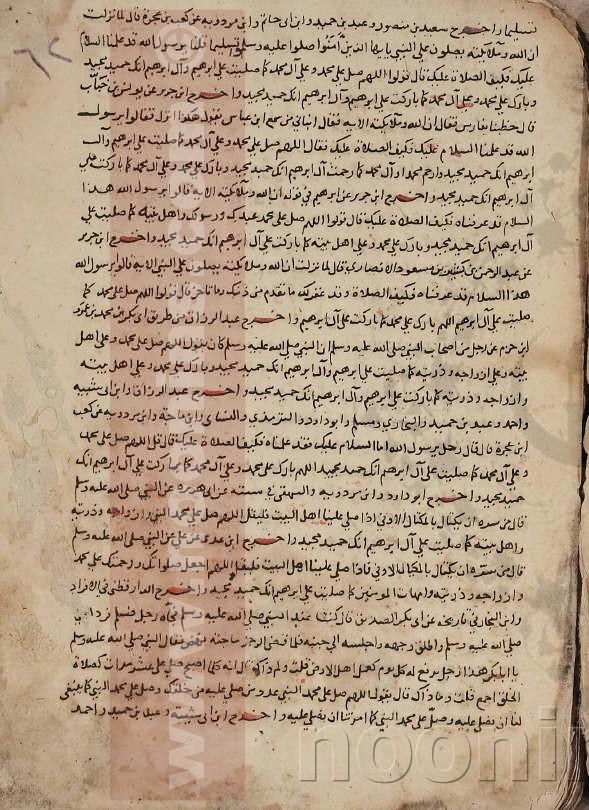 تسليما واخرج سعيد بن منصور وعبد بن حميد وابن ابى حاتم وابن مردويه عن كعب بن عجرة قال لما نزلت
ان الله وملائكته يصلون على النبي يايها الذين آمنوا صلوا عليه وسلموا تسليما قلنا يرسول الله قد علمنا السلام
عليك فكيف الصلاة عليك قال قولوا اللهم صل على محمد وعلى آل محمد كما صليت على ابرهيم وآل ابرهيم انك حميد مجيد
وبارك على محمد وعلى آل محمد كما باركت على ابرهيم وآل ابرهيم انك حميد مجيد واخرج ابن جرير عن يونس بن خباب
قال خطبنا بفارس فقال ان الله وملائكته الايه فقال انبانى من سمع ابن عباس يقول هكذا انزل فقالوا يرسول
الله قد علمنا السلام عليك فكيف الصلاة عليك فقال اللهم صل على محمد وعلى آل محمد كما صليت على ابرهيم وآل
ابرهيم انك حميد مجيد وارحم محمد وآل محمد كما رحمت آل ابرهيم انك حميد مجيد وبارك على محمد وعلى آل محمد كما باركت على
آل ابرهيم انك حميد مجيد واخرج ابن جرير عن ابرهيم في قوله ان الله وملائكته الايه قالوا يرسول الله هذا
السلام قد عرفناه فكيف الصلاة عليك قال قولوا اللهم صل على محمد عبدك ورسولك واهل بيته كما صليت على
آل ابرهيم انك حميد مجيد وبارك على محمد وعلى اهل بيته كما باركت على آل ابرهيم انك حميد مجيد واخرج ابن جرير
عن عبد الرحمن بن كثير بن مسعود الانصارى قال لما نزلت ان الله وملائكته يصلون على النبي الايه قالوا يرسول الله
هذا السلام قد عرفناه فكيف الصلاة وقد غفر لك ما تقدم من ذنبك وما تاخر قال قولوا اللهم صل على محمد كما
صليت على آل ابرهيم اللهم بارك على محمد كما باركت على آل ابرهيم واخرج عبد الرزاق من طريق ابى بكر بن محمد بن عمرو
ابن حزم عن رجل من اصحاب النبي صلى الله عليه وسلم ان النبي صلى الله عليه وسلم كان يقول اللهم صل على محمد وعلى اهل
بيته وعلى ازواجه وذريته كما صليت على ابرهيم وآل ابرهيم انك حميد مجيد وبارك على محمد وعلى اهل بيته
وازواجه وذريته كما باركت على ابرهيم وآل ابرهيم انك حميد مجيد واخرج عبد الرزاق وابن ابى شيبه
واحمد وعبد بن حميد والبخارى ومسلم وابو داود والترمذي والنساى وابن ماجة وابن مردويه عن كعب
ابن عجرة قال قال رجل يرسول الله اما السلام عليك فقد علمناه فكيف الصلاة عليك قال قل اللهم صل على محمد
وعلى آل محمد كما صليت على آل ابرهيم انك حميد مجيد اللهم بارك على محمد وعلى آل محمد كما باركت على آل ابرهيم انك
حميد مجيد واخرج ابو داود وابن مردويه والبيهقى في سننه عن ابى هريرة عن النبي صلى الله عليه وسلم
قال من سره ان يكتال بالمكيال الاوفى اذا صلى علينا اهل البيت فليقل اللهم صل على محمد النبي وازواجه وذريته
واهل بيته كما صليت على آل ابرهيم انك حميد مجيد واخرج ابن عدى عن على عن النبي صلى الله عليه وسلم
قال من سره ان يكتال بالمكيال الاوفى فاذا صلى علينا اهل البيت فليقل اللهم اجعل صلواتك ورحمتك على محمد
وازواجه وذريته وامهات المومنين كما صليت على ابرهيم انك حميد مجيد واخرج الدارقطنى في الافراد
وابن النجار في تاريخه عن ابى بكر الصديق قال كنت عند النبي صلى الله عليه وسلم فجآه رجل فسلم فرد
صلى الله عليه وسلم واطلق وجهه واجلسه الى جنبه فلما قضى الرجل حاجته نهض فقال النبي صلى الله عليه وسلم
يا ابابكر هذا رجل يرفع له كل يوم كعمل اهل الارض قلت ولم ذاك قال انه كلما اصبح صلى على عشر مرات كصلاة
الخلق اجمع قلت وما ذاك قال يقول اللهم صل على محمد النبي عدد من صلى عليه من خلقك وصل على محمد النبي كما ينبغى
لنا ان نصلى عليه وصل على محمد النبي كما امرتنا ان نصلى عليه واخرج ابن ابى شيبة وعبد بن حميد واحمد
nooni